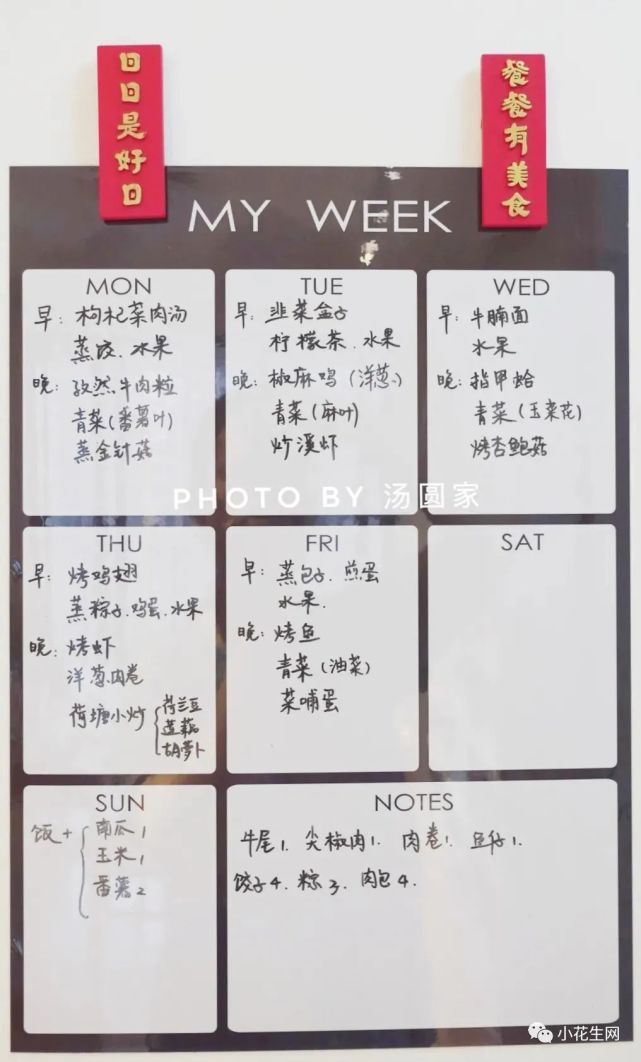 日日是好日
餐餐有美食
MY WEEK
MON
早：枸杞菜肉汤
蒸饺、水果
晚：孜然牛肉粒
青菜（番薯叶）
蒸金针菇
TUE
早：韭菜盒子
柠檬茶、水果
晚：椒麻鸡（洋葱、）
青菜（麻叶）
炒溪虾
WED
早：牛腩面
水果
晚：指甲蛤
青菜（玉菜花）
烤杏鲍菇
PHOTO BY 汤圆家
THU
早：烤鸡翅
蒸粽子、鸡蛋、水果
晚：烤虾
洋葱肉卷
荷塘小炒
荷兰豆
莲藕
胡萝卜
FRI
早：蒸包子、煎蛋
水果.
晚：烤鱼
青菜（油菜）
菜哺蛋
SAT
SUN
饭+
南瓜1
玉米1
番薯2
NOTES
牛尾1. 尖椒肉1. 肉卷1. 鱼仔1.
饺子4. 粽3. 肉包4.
小花生网